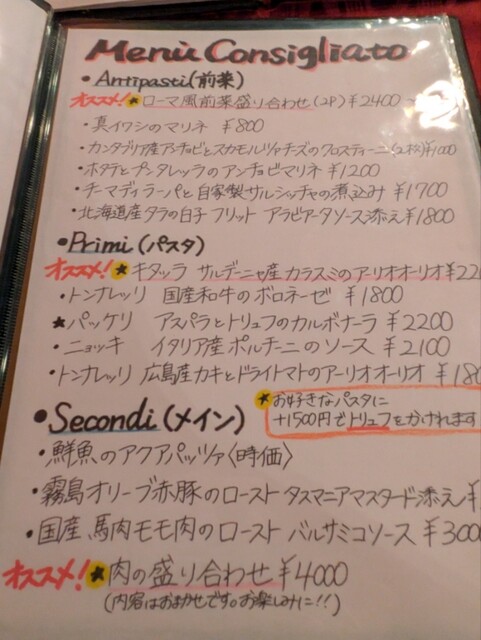 Menù Consigliato
• Antipasti (前菜)
オススメ!★ローマ風前菜盛り合わせ(2P) ¥2400〜
・真イワシのマリネ ¥800
・カンタブリア産アンチョビとスカモルツァチーズのクロスティーニ(2枚)¥1000
・ホタテとプンタレッラのアンチョビマリネ ¥1200
・チーマディラーパと自家製サルシッチャの煮込み ¥1700
・北海道産タラの白子フリット アラビアータソース添え ¥1800
• Primi (パスタ)
オススメ!★キタッラ サルデーニャ産カラスミのアーリオオーリオ ¥22
・トンナレッリ 国産和牛のボロネーゼ ¥1800
★パッケリ アスパラとトリュフのカルボナーラ ¥2200
・ニョッキ イタリア産ポルチーニのソース ¥2100
・トンナレッリ 広島産カキとドライトマトのアーリオオーリオ ¥180
★お好きなパスタに
+1500円でトリュフをかけれます
• Secondi (メイン)
・鮮魚のアクアパッツァ〈時価〉
・霧島オリーブ赤豚のロースト タスマニアマスタード添え ¥
・国産 馬肉モモ肉のロースト バルサミコソース ¥3000
オススメ!★肉の盛り合わせ ¥4000
(内容はおまかせです。お楽しみに!!)